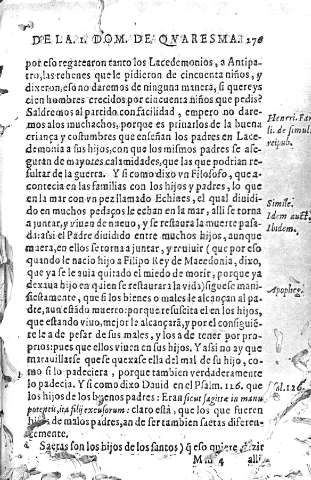 DE LA 1. DOM. DE QVARESMA. 276
por eso regatearon tanto los Lacedemonios, a Antipa-
tro, las rehenes que le pidieron de cincuenta niños, y
dixeron, eso no daremos de ninguna manera, si quereys
cien hombres crecidos por cincuenta niños que pedis?
Saldremos al partido con facilidad, empero no dare-
mos a los muchachos, porque es priuarlos de la buena
criança y costumbres que enseñan los padres en Lace-
demonia a sus hijos, con que los mismos padres se ase-
guran de mayores calamidades, que las que podrian re-
sultar de la guerra. Y si como dixo vn Filosofo, que a-
contecia en las familias con los hijos y padres, lo que
en la mar con vn pez llamado Echines, el qual diuidi-
do en muchos pedaços le echan en la mar, alli se torna
a juntar, y viuen de nueuo, y se restaura la muerte pasa-
da: asi el Padre diuidido entre muchos hijos, aunque
muera, en ellos se torna a juntar, y reuiuir (que por eso
quando le nacio hijo a Filipo Rey de Macedonia, dixo,
que ya se le auia quitado el miedo de morir, porque ya
dexaua hijo en quien se restaurara la vida) siguese mani-
fiestamente, que si los bienes o males le alcançan al pa-
dre, aun estãdo muerto: porque resuscita el en los hijos,
que estando viuo, mejor le alcançarã, y por el consiguiẽ-
te le a de pesar de sus males, y los a de tener por pro-
prios: pues que ellos viuen en sus hijos. Y asi no ay que
marauillarse que se quexase ella del mal de su hijo, co-
mo si lo padeciera, porque tambien verdaderamente
lo padecia. Y si como dixo Dauid en el Psalm. 126. que
los hijos de los buenos padres: Eran sicut sagittæ in manu
potentis, ita filij excusorum: claro està, que los que fueren
hijos de malos padres, an de ser tambien saetas diferen-
temente.
Saetas son los hijos de los santos) q̃ eso quiere dezir
Mm 4 alli
Henri. Far.
li. de simul.
reipub.
Simile.
Idem auct.
Ibidem.
Apophteg.
Psal. 126.